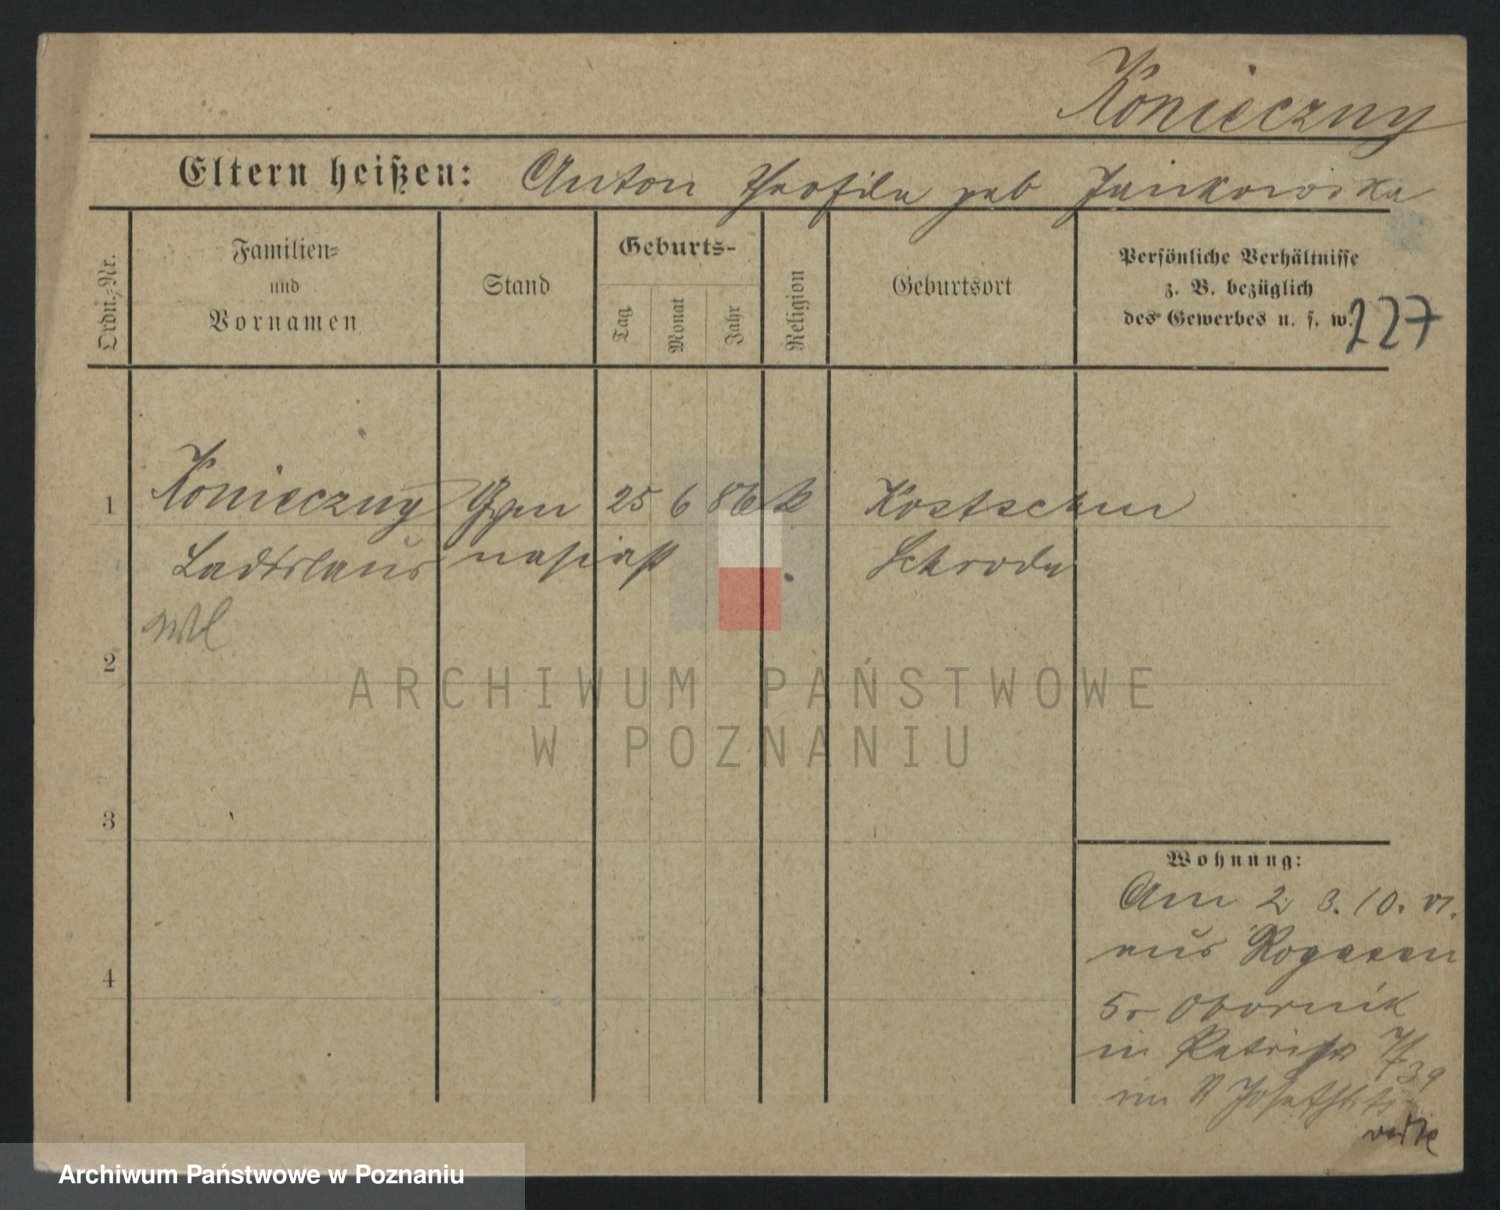 Konieczny
Eltern heißen: Anton Theofila geb Jankowska
Ordn.-Nr.
Familien-
und
Vornamen
Stand
Geburts-
Tag
Monat
Jahr
Religion
Geburtsort
Persönliche Verhältnisse
z. B. bezüglich
des Gewerbes u. s. w.
227
1 Konieczny Gym 25 6 86 k Kostschin
Ladislaus nasiast Schroda
Wl
2
ARCHIWUM PAŃSTWOWE
W POZNANIU
3
Wohnung:
Am 2 3. 10. 
aus Rogasen
4
Obornik
in
im
Archiwum Państwowe w Poznaniu